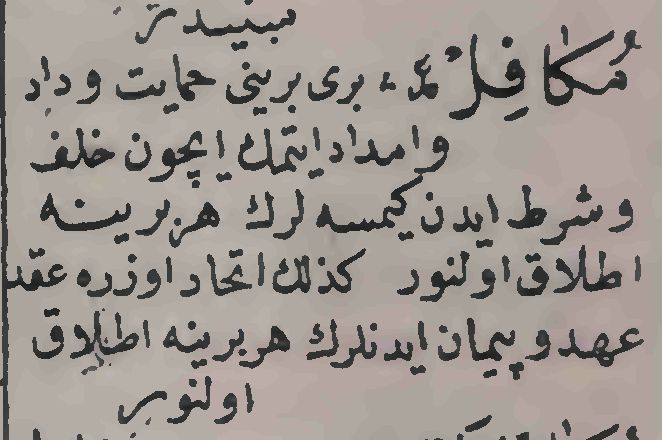 مُكَافِلْ مد، برى برينى حمايت و داد
و امداد ايتمك ايچون خلف
و شرط ايدن كيمسه لرك هر برينه
اطلاق اولنور كذلك اتحاد اوزره عقد
عهد و پيمان ايدنلرك هر برينه اطلاق
اولنور